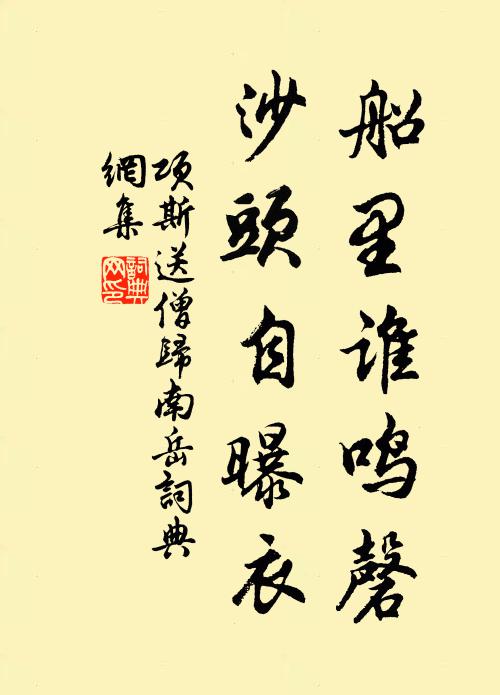 船里谁鸣磬
沙頭自曝衣
项斯送僧歸南岳詞典
網集
詞典網印